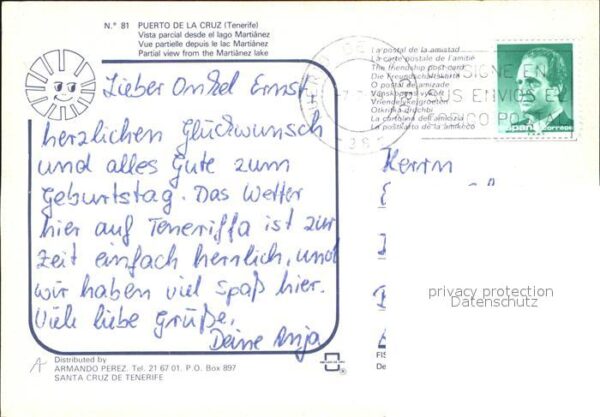 N.° 81 PUERTO DE LA CRUZ (Tenerife)
Vista parcial desde el lago Martiánez
Vue partielle depuis le lac Martiánez
Partial view from the Martiánez lake
Lieber Onkel Ernst,
herzlichen Glückwunsch
und alles Gute zum
Geburtstag. Das Wetter
hier auf Teneriffa ist zur
Zeit einfach herrlich, und
wir haben viel Spaß hier.
Viele liebe Grüße,
Deine Anja
La postal de la amistad
La carte postale de l'amitié
The friendship post card
Die Freundschaftskarte
O postal de amizade
Vriendelijke groeten
La cartolina dell'amicizia
La postkarto de la amikeco
CONSIGNE EN
SUS ENVIOS EL
españa correos
Herrn
privacy protection
Datenschutz
FIS
De
Distributed by
ARMANDO PEREZ. Tel. 21 67 01. P.O. Box 897
SANTA CRUZ DE TENERIFE